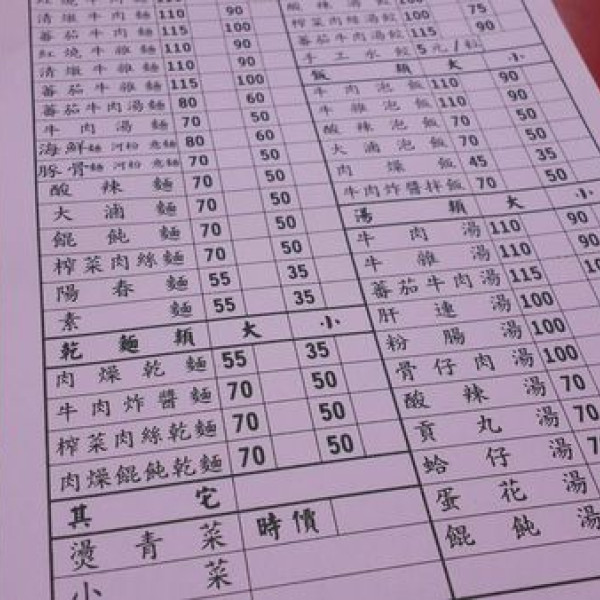 清燉牛肉麵 110 90
蕃茄牛肉麵 115 100
紅燒牛雜麵 110 90
清燉牛雜麵 110 90
蕃茄牛雜麵 115 100
蕃茄牛肉湯麵 80 60
牛肉湯麵 70 50
海鮮麵 河粉 意麵 80 60
豚骨麵 河粉 意麵 70 50
酸辣麵 70 50
大滷麵 70 50
餛飩麵 70 50
榨菜肉絲麵 70 50
陽春麵 55 35
素麵 55 35
乾麵類 大 小
肉燥乾麵 55 35
牛肉炸醬麵 70 50
榨菜肉絲乾麵 70 50
肉燥餛飩乾麵 70 50
其它
燙青菜 時價
小菜
榨菜肉絲湯餃 100 75
蕃茄牛肉湯餃 115 90
手工水餃 5元/粒
飯類 大 小
牛肉泡飯 110 90
牛雜泡飯 110 90
酸辣泡飯 70 50
大滷泡飯 70 50
肉燥飯 45 35
牛肉炸醬拌飯 70 50
湯類 大 小
牛肉湯 110 90
牛雜湯 110 90
蕃茄牛肉湯 115
肝連湯 100
粉腸湯 100
骨仔肉湯 100
酸辣湯 70
貢丸湯 70
蛤仔湯
蛋花湯
餛飩湯